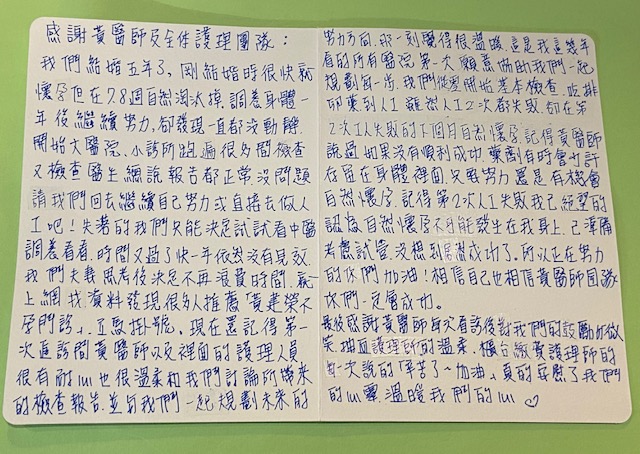 感謝黃醫師及全体護理團隊：
我們結婚五年了，剛結婚時很快就
懷孕但在7.8週自然淘汰掉，調養身體一
年後繼續努力，卻發現一直都沒動靜，
開始大醫院、小診所跑遍很多間檢查
又檢查醫生總說報告都正常沒問題
請我們回去繼續自己努力或直接去做人
工吧！失落的我們只能決定試試看中醫
調養看看，時間又過了快一年依然沒有見效
我們夫妻思考後決定不再浪費時間，就
上網找資料發現很多人推薦「黃建榮不
孕門診」，立馬掛號。現在還記得第一
次進診間黃醫師以及裡面的護理人員
很有耐心也很溫柔和我們討論所帶來
的檢查報告，並与我們一起規劃未來的
努力方向，那一刻覺得很溫暖，這是我這幾年
看的所有醫院第一次願意協助我們一起
規劃每一步，我們從零開始基本檢查，吃排
卵藥到人工，雖然人工2次都失敗，卻在第
2次人工失敗的下個月自然懷孕，記得黃醫師
說過如果沒有順利成功，藥劑有時會也許
存留在身體裡面，只要努力還是有機會
自然懷孕，記得第2次人工失敗我已經絕望的
認為自然懷孕不可能發生在我身上，已準備
考慮試管，沒想到居然成功了。所以正在努力
的你們加油！相信自己也相信黃醫師團隊
你們一定會成功。
最後感謝黃醫師每次看診後對我們的鼓勵加微
笑，抽血護理師的溫柔，櫃台繳費護理師的
每一次說的「辛苦了~加油」，真的安慰了我們
的心靈，溫暖我們的心♡